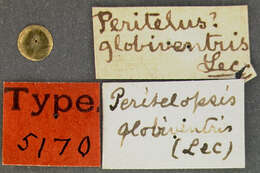 Peritelus?
globiventris
Lec.
Type
5170
Peritelopsis
globiventris
(Lec)